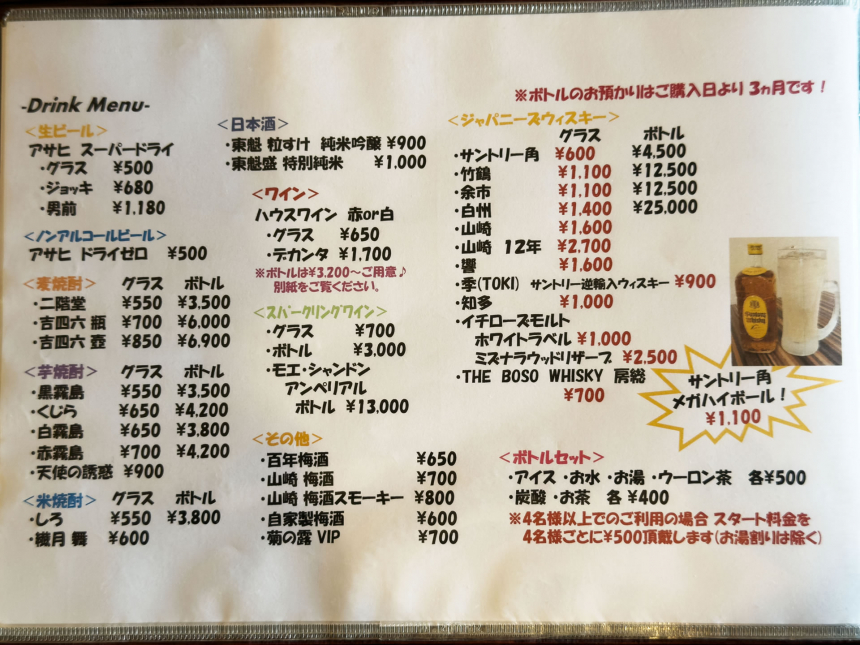 -Drink Menu-
<生ビール>
アサヒ スーパードライ
・グラス ¥500
・ジョッキ ¥680
・男前 ¥1.180
<ノンアルコールビール>
アサヒ ドライゼロ ¥500
<麦焼酎> グラス ボトル
・二階堂 ¥550 ¥3,500
・吉四六 瓶 ¥700 ¥6,000
・吉四六 壺 ¥850 ¥6,900
<芋焼酎> グラス ボトル
・黒霧島 ¥550 ¥3,500
・くじら ¥650 ¥4,200
・白霧島 ¥650 ¥3,800
・赤霧島 ¥700 ¥4,200
・天使の誘惑 ¥900
<米焼酎> グラス ボトル
・しろ ¥550 ¥3.800
・繊月 舞 ¥600
<日本酒>
・東魁 粒すけ 純米吟醸 ¥900
・東魁盛 特別純米 ¥1,000
<ワイン>
ハウスワイン 赤or白
・グラス ¥650
・デカンタ ¥1,700
※ボトルは¥3,200～ご用意♪
別紙をご覧ください。
<スパークリングワイン>
・グラス ¥700
・ボトル ¥3,000
・モエ・シャンドン
アンペリアル
ボトル ¥13,000
<その他>
・百年梅酒 ¥650
・山崎 梅酒 ¥700
・山崎 梅酒スモーキー ¥800
・自家製梅酒 ¥600
・菊の露 VIP ¥700
※ボトルのお預かりはご購入日より 3ヵ月です！
<ジャパニーズウィスキー>
グラス ボトル
・サントリー角 ¥600 ¥4,500
・竹鶴 ¥1.100 ¥12.500
・余市 ¥1.100 ¥12.500
・白州 ¥1.400 ¥25.000
・山崎 ¥1.600
・山崎 12年 ¥2.700
・響 ¥1.600
・季(TOKI) サントリー逆輸入ウィスキー ¥900
・知多 ¥1.000
・イチローズモルト
ホワイトラベル ¥1.000
ミズナラウッドリザーブ ¥2.500
・THE BOSO WHISKY 房総
¥700
サントリー角
メガハイボール！
¥1.100
<ボトルセット>
・アイス ・お水 ・お湯 ・ウーロン茶 各¥500
・炭酸 ・お茶 各 ¥400
※4名様以上でのご利用の場合 スタート料金を
4名様ごとに¥500頂戴します(お湯割りは除く)